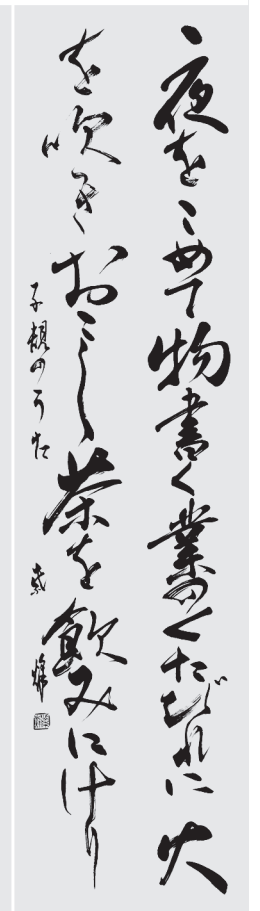 夜をこめて物書く業のくたびれに火
を吹きおこし茶を飲みにけり
子規のうた